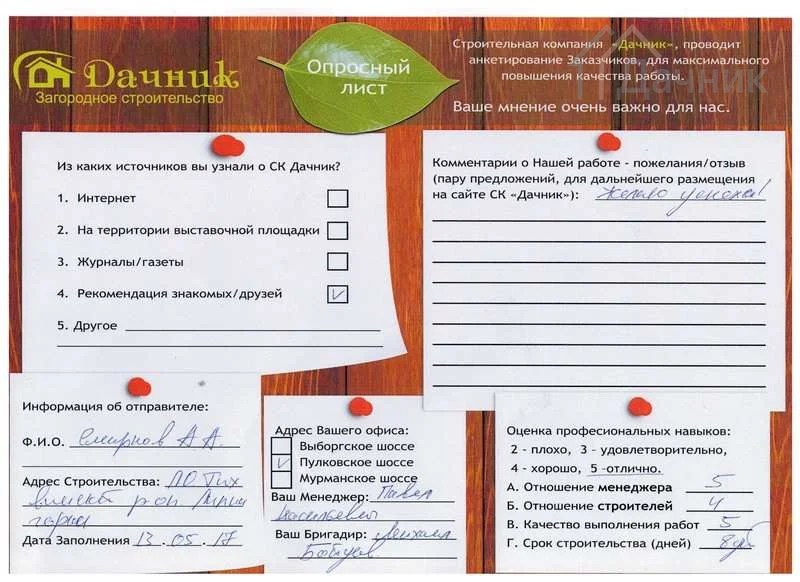 Дачник
Загородное строительство
Опросный
лист
Строительная компания «Дачник», проводит
анкетирование Заказчиков, для максимального
повышения качества работы.
Ваше мнение очень важно для нас.
Дачник
Из каких источников вы узнали о СК Дачник?
1. Интернет
2. На территории выставочной площадки
3. Журналы/газеты
4. Рекомендация знакомых/друзей
5. Другое
Комментарии о Нашей работе - пожелания/отзыв
(пару предложений, для дальнейшего размещения
на сайте СК «Дачник»): Желаю успехов!
Информация об отправителе:
Ф.И.О. Смирнов А А.
Адрес Строительства: ЛО
рон
горки
Дата Заполнения 13.05.17
Адрес Вашего офиса:
Выборгское шоссе
Пулковское шоссе
Мурманское шоссе
Ваш Менеджер: Павел
Васильевич
Ваш Бригадир: Михаил
Оценка профессиональных навыков:
2 - плохо, 3 - удовлетворительно,
4 - хорошо, 5 -отлично.
А. Отношение менеджера 5
Б. Отношение строителей 4
В. Качество выполнения работ 5
Г. Срок строительства (дней) 8